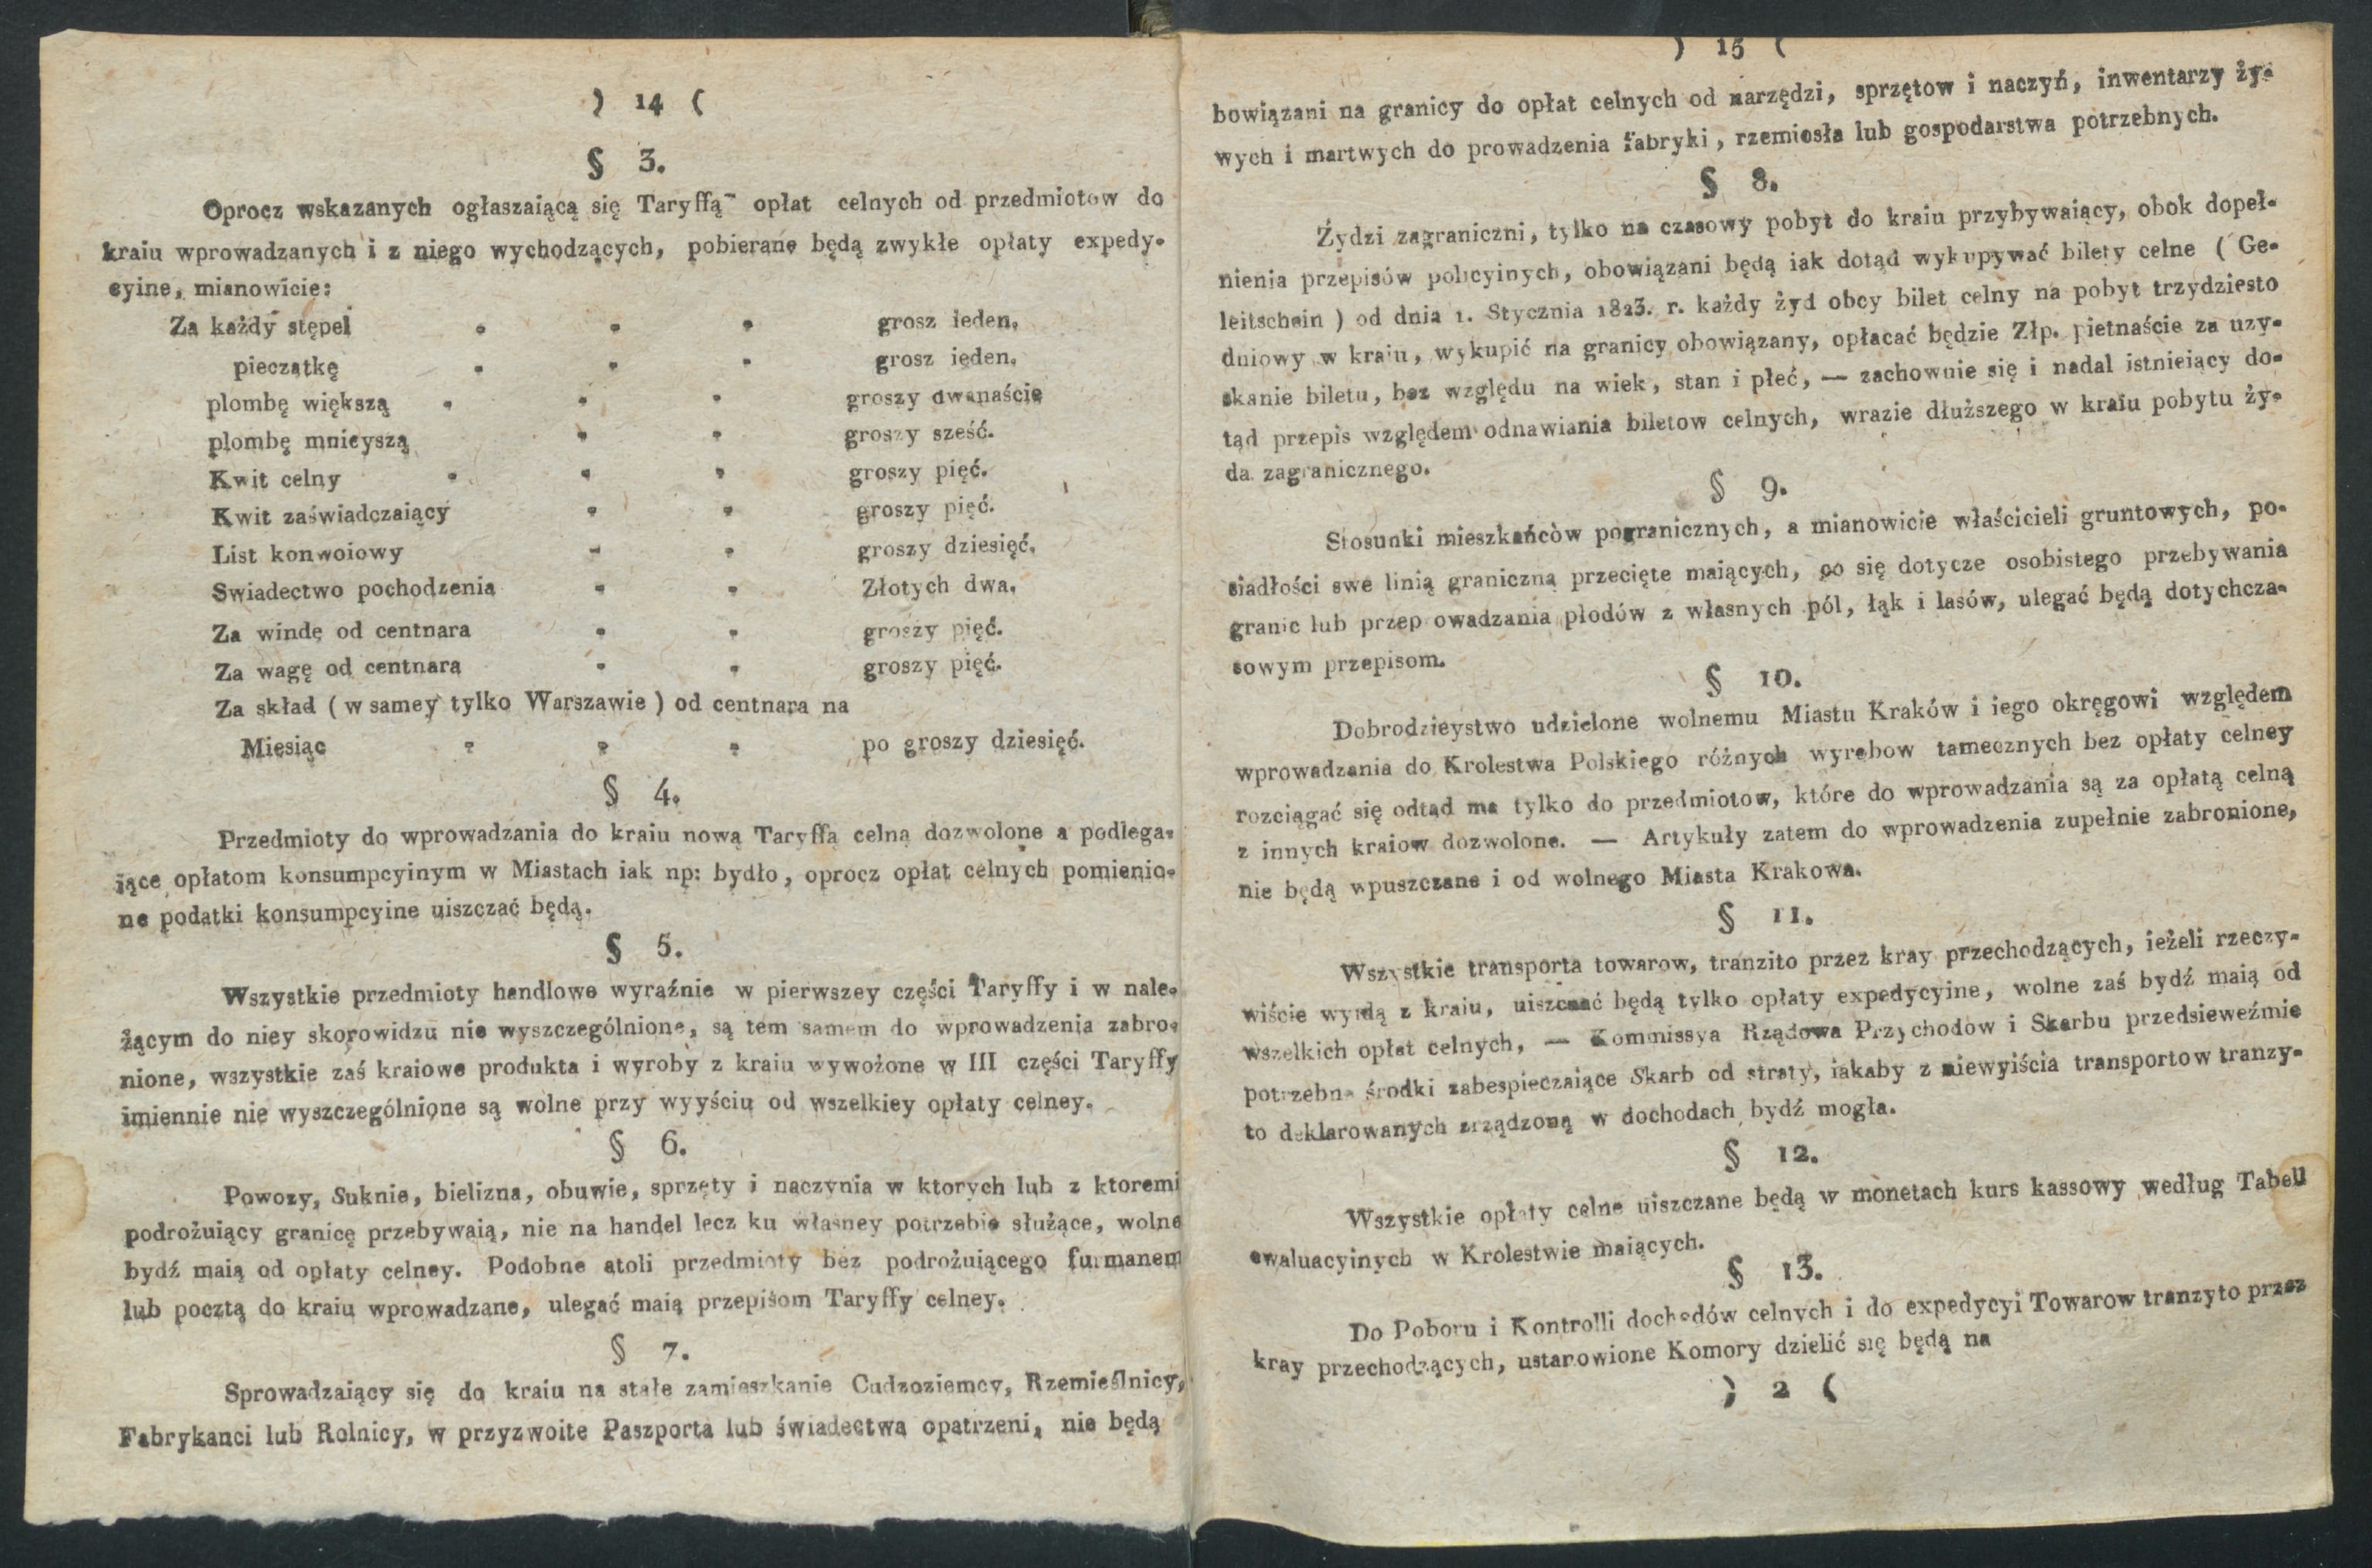 ) 14 (
§ 3.
Oprocz wskazanych ogłaszaiącą się Taryffą opłat celnych od przedmiotow do
kraiu wprowadzanych i z niego wychodzących, pobierane będą zwykłe opłaty expedy-
cyine, mianowicie:
Za każdy stępel " " " grosz ieden.
pieczątkę " " " grosz ieden.
plombę większą " " " groszy dwanaście
plombę mnieyszą " " groszy sześć.
Kwit celny " " " groszy pięć.
Kwit zaświadczaiący " " groszy pięć.
List konwoiowy " " groszy dziesięć.
Swiadectwo pochodzenia " " Złotych dwa.
Za windę od centnara " " groszy pięć.
Za wagę od centnara " " groszy pięć.
Za skład ( w samey tylko Warszawie ) od centnara na
Miesiąc " " " po groszy dziesięć.
§ 4.
Przedmioty do wprowadzania do kraiu nową Taryffą celną dozwolone a podlega-
iące opłatom konsumpcyinym w Miastach iak np: bydło, oprocz opłat celnych pomienio-
ne podatki konsumpcyine uiszczać będą.
§ 5.
Wszystkie przedmioty handlowe wyraźnie w pierwszey części Taryffy i w nale-
żącym do niey skorowidzu nie wyszczególnione, są tem samem do wprowadzenia zabro-
nione, wszystkie zaś kraiowe produkta i wyroby z kraiu wywożone w III części Taryffy
imiennie nie wyszczególnione są wolne przy wyyściu od wszelkiey opłaty celney.
§ 6.
Powozy, Suknie, bielizna, obuwie, sprzęty i naczynia w ktorych lub z ktoremi
podrożuiący granicę przebywaią, nie na handel lecz ku własney potrzebie służące, wolne
bydź maią od opłaty celney. Podobne atoli przedmioty bez podrożuiącego furmanem
lub pocztą do kraiu wprowadzane, ulegać maią przepisom Taryffy celney.
§ 7.
Sprowadzaiący się do kraiu na stałe zamieszkanie Cudzoziemcy, Rzemieślnicy,
Fabrykanci lub Rolnicy, w przyzwoite Paszporta lub świadectwa opatrzeni, nie będą
) 15 (
bowiązani na granicy do opłat celnych od narzędzi, sprzętow i naczyń, inwentarzy ży-
wych i martwych do prowadzenia fabryki, rzemiosła lub gospodarstwa potrzebnych.
§ 8.
Żydzi zagraniczni, tylko na czasowy pobyt do kraiu przybywaiący, obok dopeł-
nienia przepisów policyinych, obowiązani będą iak dotąd wykupywać bilety celne ( Ge-
leitschein ) od dnia 1. Stycznia 1823. r. każdy żyd obcy bilet celny na pobyt trzydziesto
dniowy w kraiu, wykupić na granicy obowiązany, opłacać będzie Złp. pietnaście za uzy-
skanie biletu, bez względu na wiek, stan i płeć, — zachowuie się i nadal istnieiący do-
tąd przepis względem odnawiania biletow celnych, wrazie dłuższego w kraiu pobytu ży-
da zagranicznego.
§ 9.
Stosunki mieszkańcòw pogranicznych, a mianowicie właścicieli gruntowych, po-
siadłości swe linią graniczną przecięte maiących, co się dotycze osobistego przebywania
granic lub przeprowadzania płodów z własnych pól, łąk i lasów, ulegać będą dotychcza-
sowym przepisom.
§ 10.
Dobrodzieystwo udzielone wolnemu Miastu Kraków i iego okręgowi względem
wprowadzania do Krolestwa Polskiego różnych wyrobow tamecznych bez opłaty celney
rozciągać się odtąd ma tylko do przedmiotow, które do wprowadzania są za opłatą celną
z innych kraiow dozwolone. — Artykuły zatem do wprowadzenia zupełnie zabronione,
nie będą wpuszczane i od wolnego Miasta Krakowa.
§ 11.
Wszystkie transporta towarow, tranzito przez kray przechodzących, ieżeli rzeczy-
wiście wyidą z kraiu, uiszczać będą tylko opłaty expedycyine, wolne zaś bydź maią od
wszelkich opłat celnych, — Kommissya Rządowa Przychodow i Skarbu przedsieweźmie
potrzebne środki zabespieczaiące Skarb od straty, iakaby z niewyiścia transportow tranzy-
to deklarowanych zrządzoną w dochodach bydź mogła.
§ 12.
Wszystkie opłaty celne uiszczane będą w monetach kurs kassowy według Tabell
ewaluacyinych w Krolestwie maiących.
§ 13.
Do Poboru i Kontrolli dochodów celnych i do expedycyi Towarow tranzyto przez
kray przechodzących, ustanowione Komory dzielić się będą na
) 2 (